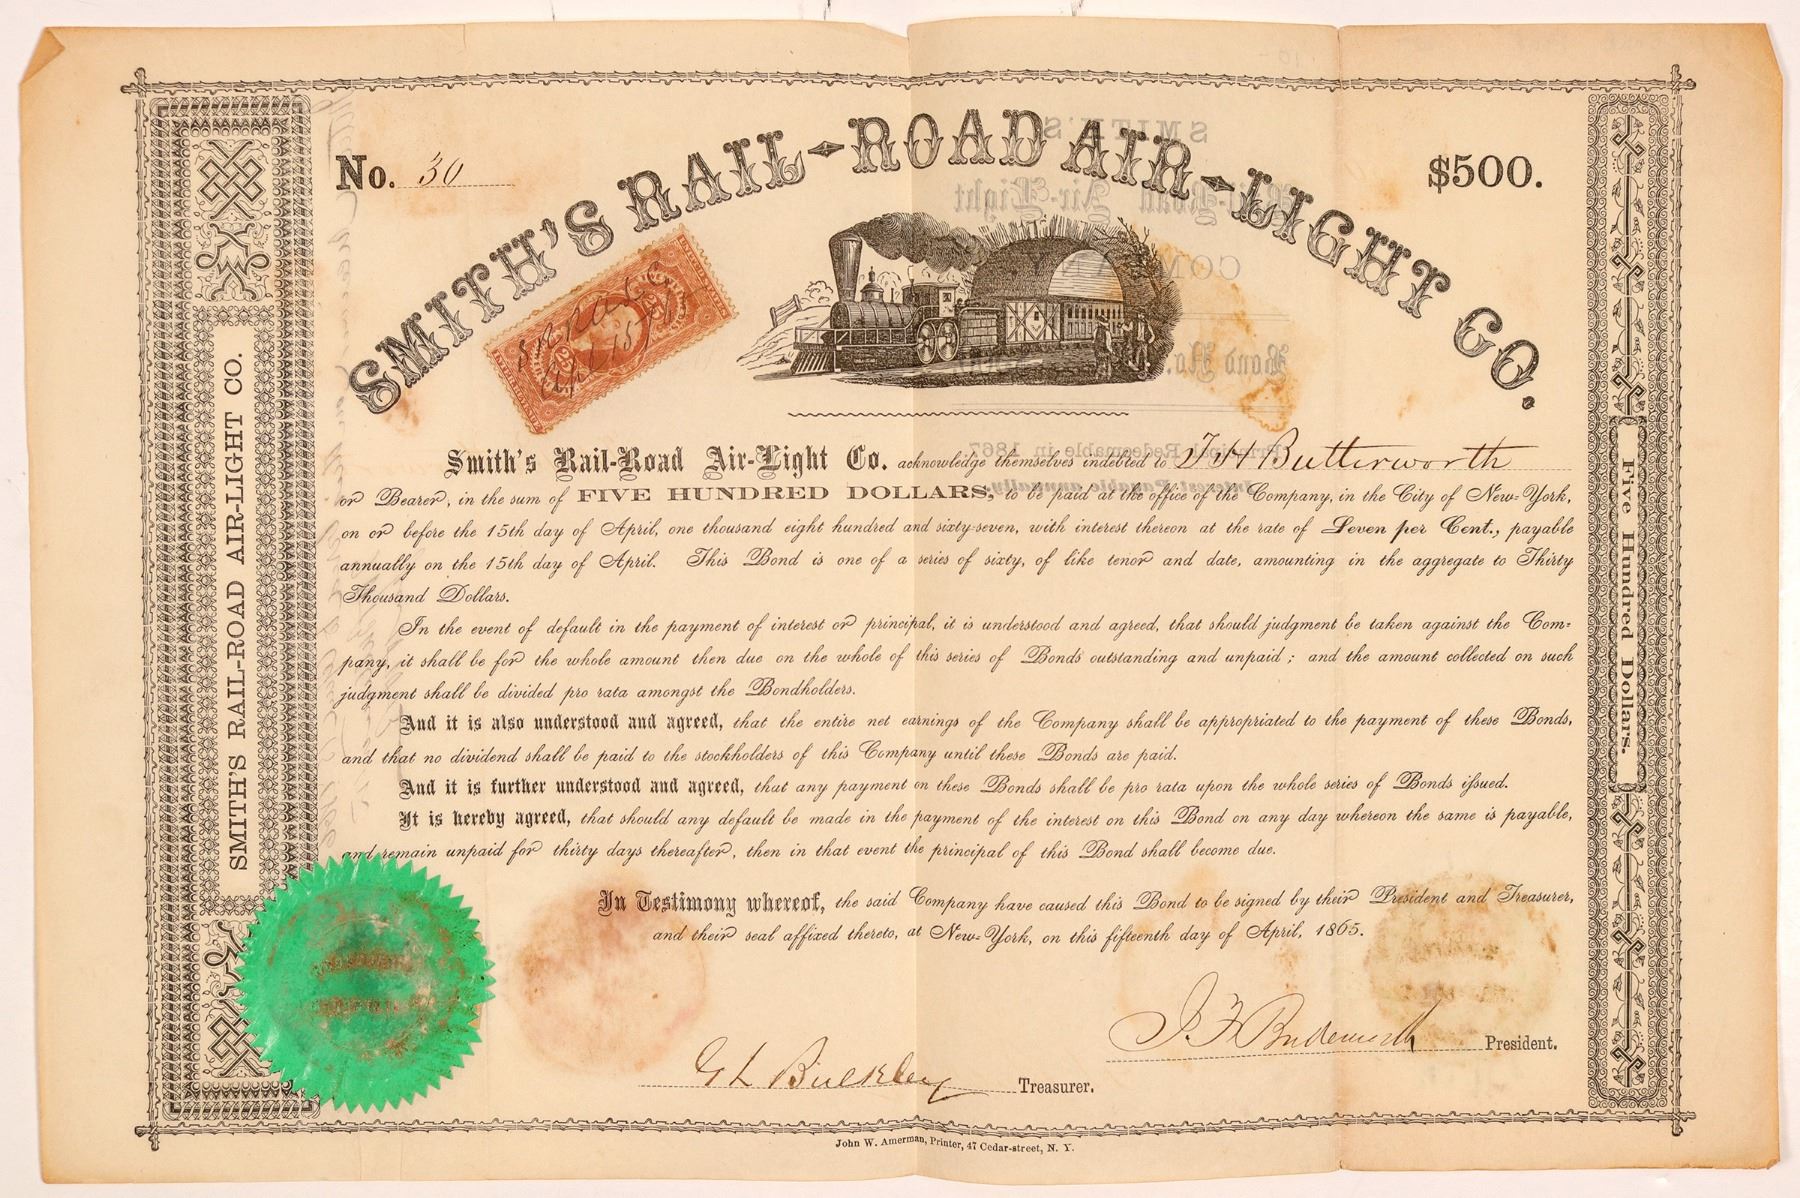 No. 30
$500.
SMITH'S RAIL-ROAD AIR-LIGHT CO.
SMITH'S RAIL-ROAD AIR-LIGHT CO.
Five Hundred Dollars.
Smith's Rail-Road Air-Light Co. acknowledge themselves indebted to T H Butterworth
or Bearer, in the sum of FIVE HUNDRED DOLLARS, to be paid at the office of the Company, in the City of New-York,
on or before the 15th day of April, one thousand eight hundred and sixty-seven, with interest thereon at the rate of Seven per Cent., payable
annually on the 15th day of April. This Bond is one of a series of sixty, of like tenor and date, amounting in the aggregate to Thirty
Thousand Dollars.
In the event of default in the payment of interest or principal, it is understood and agreed, that should judgment be taken against the Com-
pany, it shall be for the whole amount then due on the whole of this series of Bonds outstanding and unpaid; and the amount collected on such
judgment shall be divided pro rata amongst the Bondholders.
And it is also understood and agreed, that the entire net earnings of the Company shall be appropriated to the payment of these Bonds,
and that no dividend shall be paid to the stockholders of this Company until these Bonds are paid.
And it is further understood and agreed, that any payment on these Bonds shall be pro rata upon the whole series of Bonds issued.
It is hereby agreed, that should any default be made in the payment of the interest on this Bond on any day whereon the same is payable,
and remain unpaid for thirty days thereafter, then in that event the principal of this Bond shall become due.
In Testimony whereof, the said Company have caused this Bond to be signed by their President and Treasurer,
and their seal affixed thereto, at New-York, on this fifteenth day of April, 1865.
President.
G L Bulkley Treasurer.
John W. Amerman, Printer, 47 Cedar-street, N. Y.